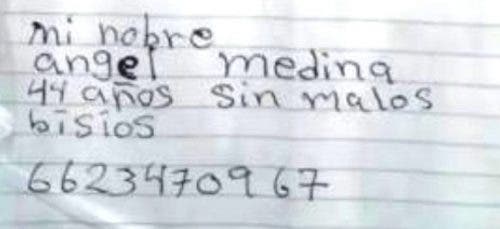 mi nobre
angel medina
44 años sin malos
bisios
6623470967